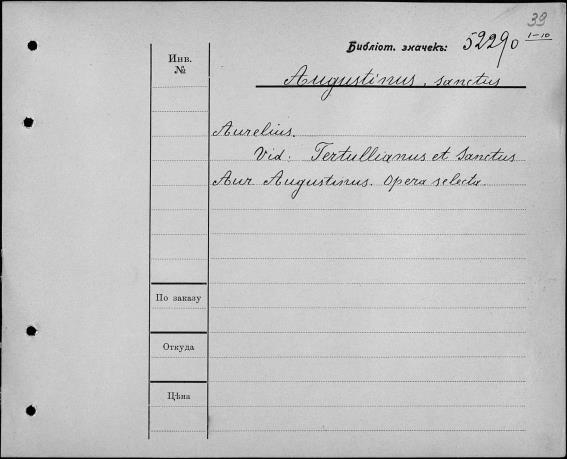 39
Библіот. значекъ: 52290 1-10
Инв.
№
Augustinus, sanctus
Aurelius.
Vid: Tertullianus et Sanctus
Aur Augustinus. Opera selecta.
По заказу
Откуда
Цѣна